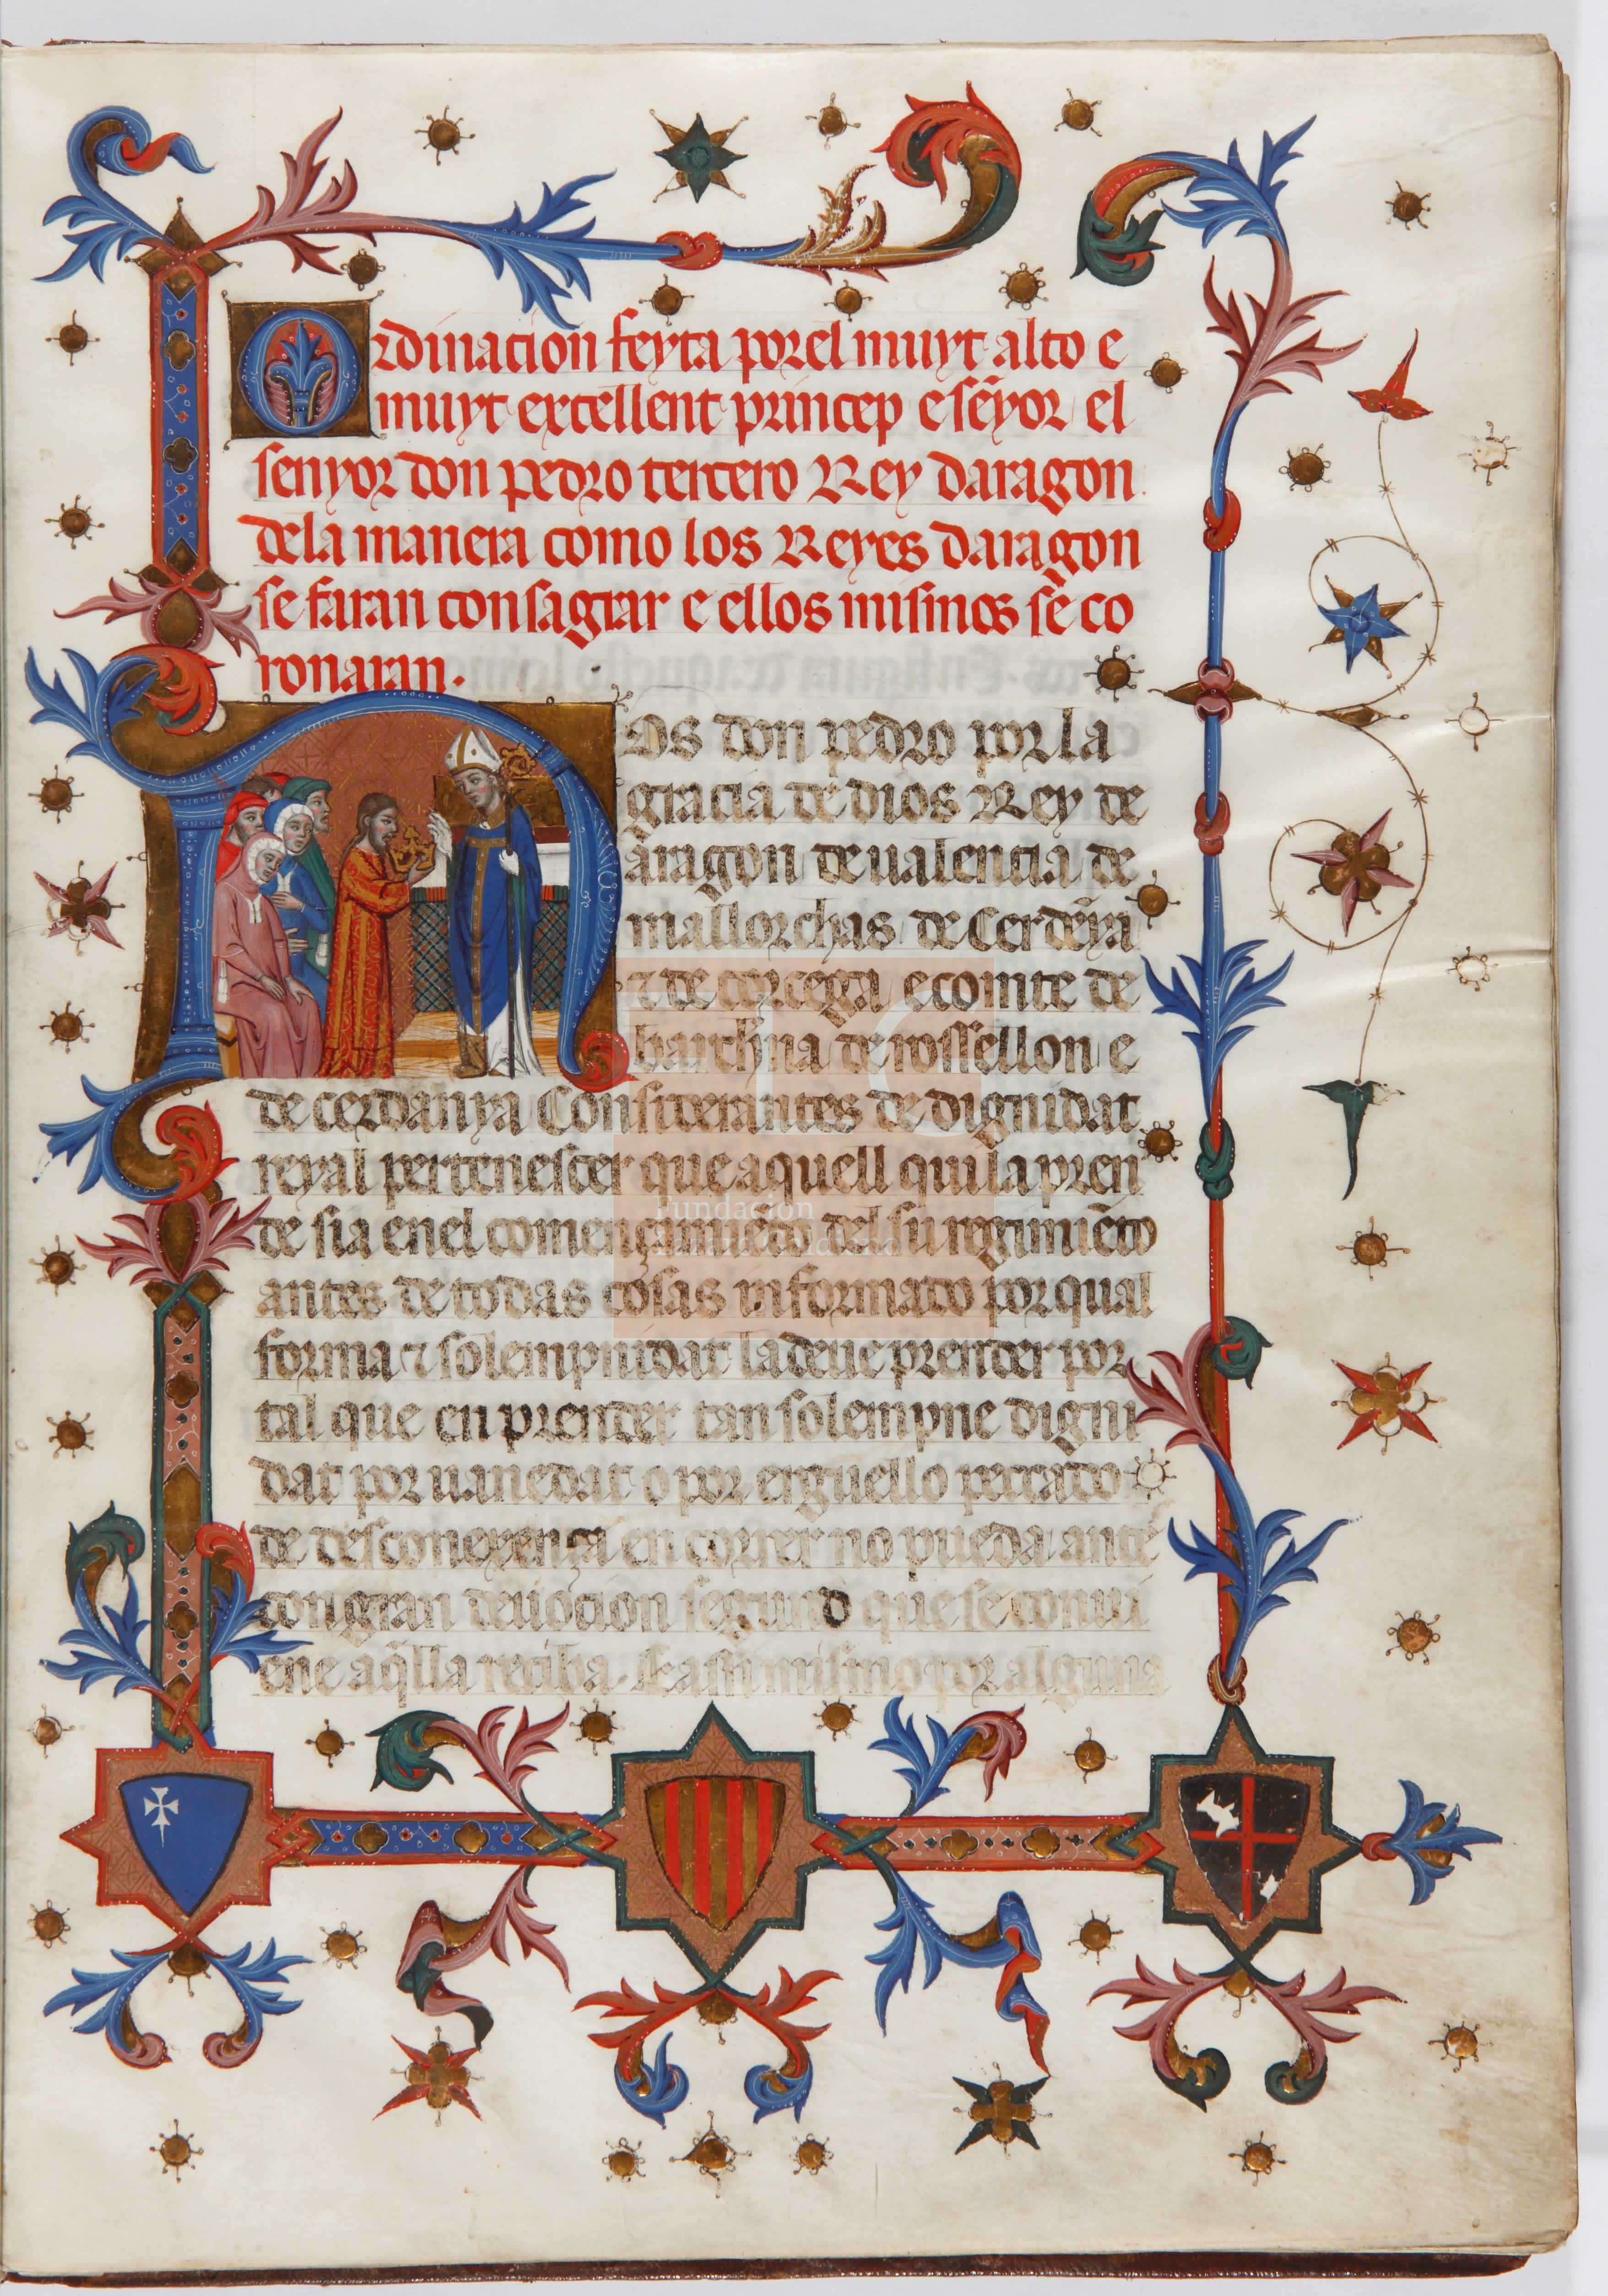 Ordinacion feyta por el muyt alto e
muyt excellent princep e sẽyor el
senyor don pedro tercero Rey daragon
de la manera como los Reyes daragon
se faran consagrar e ellos mismos se co
ronaran.
Nos don pedro por la
gracia de dios Rey de
aragon de ualencia de
mallorchas de Cerdẽya
⁊ de corcega e comte de
barchña de rossellon e
de cerdanya Considerantes de dignidat
reyal pertenescer que aquell qui la pren
de sia en el començamiẽto del su regimiẽto
antes de todas cosas informado por qual
forma ⁊ solempnidat la deue prender por
tal que en prender tan solempne digni
dat por uanedat o por erguello peccado
de desconexença en correr no pueda ante
con gran deuocion segund que se conui
ene aq̃lla reciba. E assi mismo por alguna
Fundación
Lázaro Galdiano